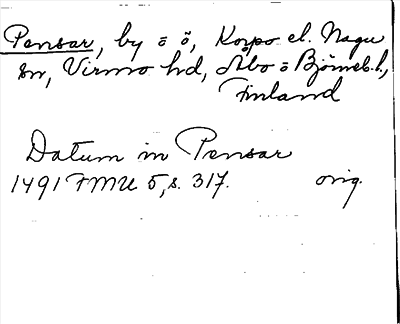 Pensar, by o ö, Korpo el. Nagu
sn, Virmo hd, Åbo o Björneb. l.,
Finland
Datum in Pensar
1491 FMU 5, s. 317. orig.